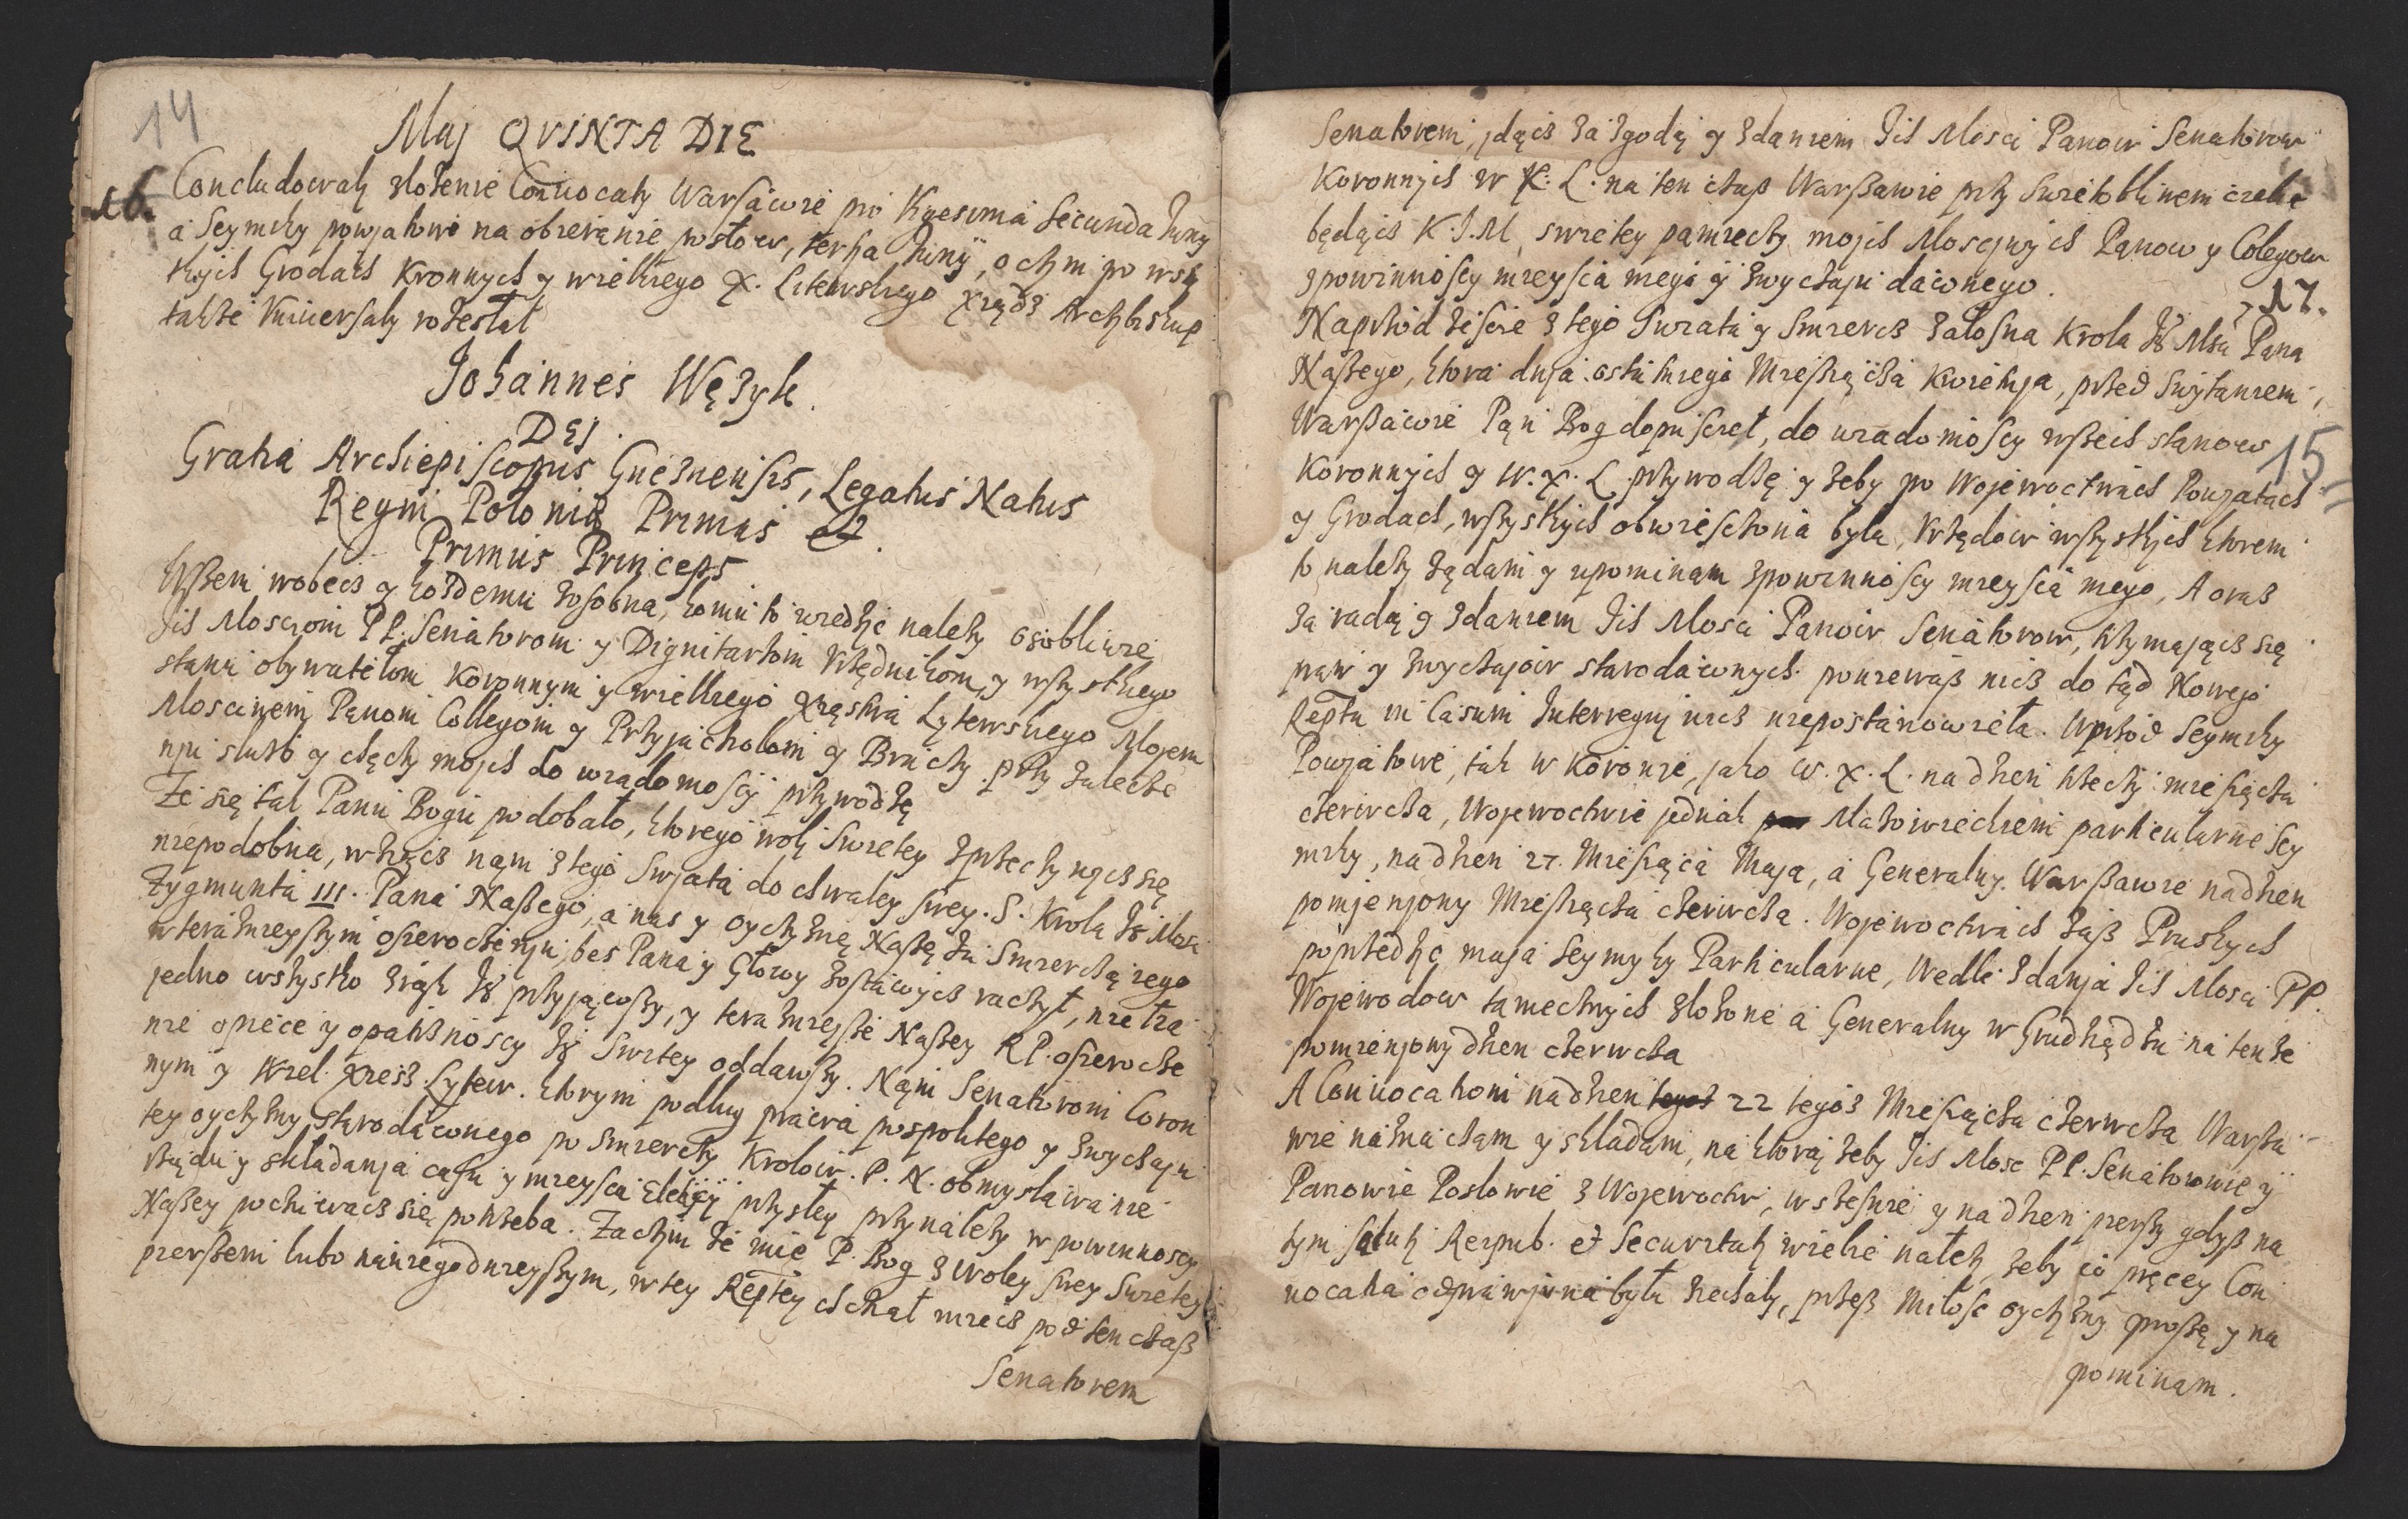 14
Maj QVINTA DIE
16. Concludowaly zlożenie Conuocaty Warsawie pro Vigesima Secunda Juny
a Seymiky powjatowe na obieranie posłow, tersa Juny, o czym po wszy
tkjch Grodach Kronnych y wielkiego X. Litewskiego Xiądz Archbiskup
także Vniuersaly rozesłał
Johannes Wężyk.
DEJ.
Gratia Archiepiscopus Gneznensis, Legatus Natus
Regni Poloniæ Primas et
Primus Princeps
Wszem wobecz y każdemu zosobna, komu to wiedzieć należy osobliwie
Jch Mosciom PP. Senatorom y Dignitarzom Vrzędnikom, y wszystkiego
stanu obywatelom Koronnym y wielkiego Xięstwa Lytewskiego Mojem
Mosciwem Panom Collegom y Przyjacholom y Braciey. przy zalecze
niu służb y chęczy mojch do wiadomoscy przywodzę
Że się tak Panu Bogu podobało, ktorego wolj Swietey zprzeczynicz się
niepodobna, wziącz nam z tego Swjata do chwaley swey. S. Krola Jo Mści
Zygmunta III. Pana Naszego, a nas y oyczyznę Naszę zu Smierczą jego
w teraznieyszym osieroczeniu, bes Pana y Głowy zostawycz raczył, nietrą
jedno wszystko z ręk Jo przyjąwszy, y teraznieysze Naszey RP. osierocze
nie opiece y opatrznoscy Jo Swietey oddawszy. Nam Senatorom Coron
nym y Wiel. Xiest. Lytew. ktorym podlug prawa pospolitego y zwyczaju
tey oyczyzny starodawnego po smierczy Krolow. P. N. obmyslawanie
rządu y składanja casu y mieysca Elekcyj przyszłey przynależy w powinnoscy
Naszey poczuwacz się potrzeba. Zaczym że mie P. Bog z woley swey Swietey
pierszem lubo nainiegodnieyszym, w tey Ręptey chcział miecz pod ten czasz
Senatorem
Senatorem, jdącz za zgodą y zdaniem Jch Mosci Panow Senatorow
Koronnych W X. L. na ten czas Warszawie przy Swietobliwem ciele
będących K.J.M. swietey pamieczy mojch Mosciwych Panow y Colegow
z powinnoscy mieysca mego y zwyczaju dawnego.
17.
Naprzod zescie z tego Swiata y smiercz załosna Krola Jo Mści Pana
Naszego, ktora dnja ostatniego Mieszącza Kwietnja, przed Swytaniem,
Warszawie Pan Bog dopuscieł, do wiadomoscy wszech stanow
15
Koronnych y W. X. L. przywodzę y żeby po Wojewoctwach Powjatach
y Grodach, wszystkych obwiesczona była, Vrzędow wszystkjch ktorem
to należy żądam y vpominam z powinnoscy mieysca mego, A oraz
za radą y zdaniem Jch Mosci Panow Senatorow, trzymającz się
praw y zwyczajow starodawnych. poniewasz nicz do tąd Nowego
Repta in Casum Interregnj nicz niepostanowieła. Wprzod Seymiky
Powjatowe, tak w Koronie, jako W. X. L. na dzien trzeczy mieszącza
czerwcza, Wojewoctwie jednak Mazowieckiem particularne Sey
miky, na dzien 27. Mieszącą Maja, a Generalny. Warszawie na dzien
pomjenjony Mieszącza czerwcza. Wojewoctwach zasz Pruskych
poprzedzic mają Seymyky Particularne, Wedle zdanja Jch Mosci PP.
Wojewodow tamecznych złożone a Generalny w Grudządzu na tenże
pomienjony dzien czerwcza
A Conuocatom na dzien 22 tegoz Mieszącza czerwcza Warsza
wie naznaczam y składam, na ktorą żeby Jch Mosc PP. Senatorowie y
Panowie Posłowie z Wojewoctw, wczesnie y na dzien pierszy gdysz na
tym saluti Reipub. et Securitati wiele należy, żeby co pręcey Con
uocatia odprawjona była ziechały, przesz miłosc oyczyzny proszę y na
pominam.